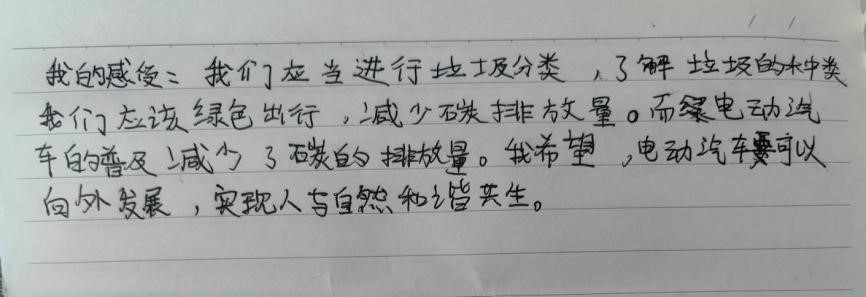 我的感後：我们应当进行垃圾分类，了解垃圾的种类
我们应该绿色出行，减少碳排放量。而电动汽
车的普及减少了碳的排放量。我希望，电动汽车可以
向外发展，实现人与自然和谐共生。